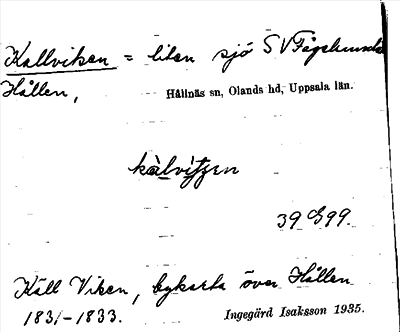 Kallviken = liten sjö SV Fågelsunda
Hållen,
Hållnäs sn, Olands hd, Uppsala län.
39 G 99.
Käll Viken, bykarta över Hållen
1831-1833.
Ingegärd Isaksson 1935.